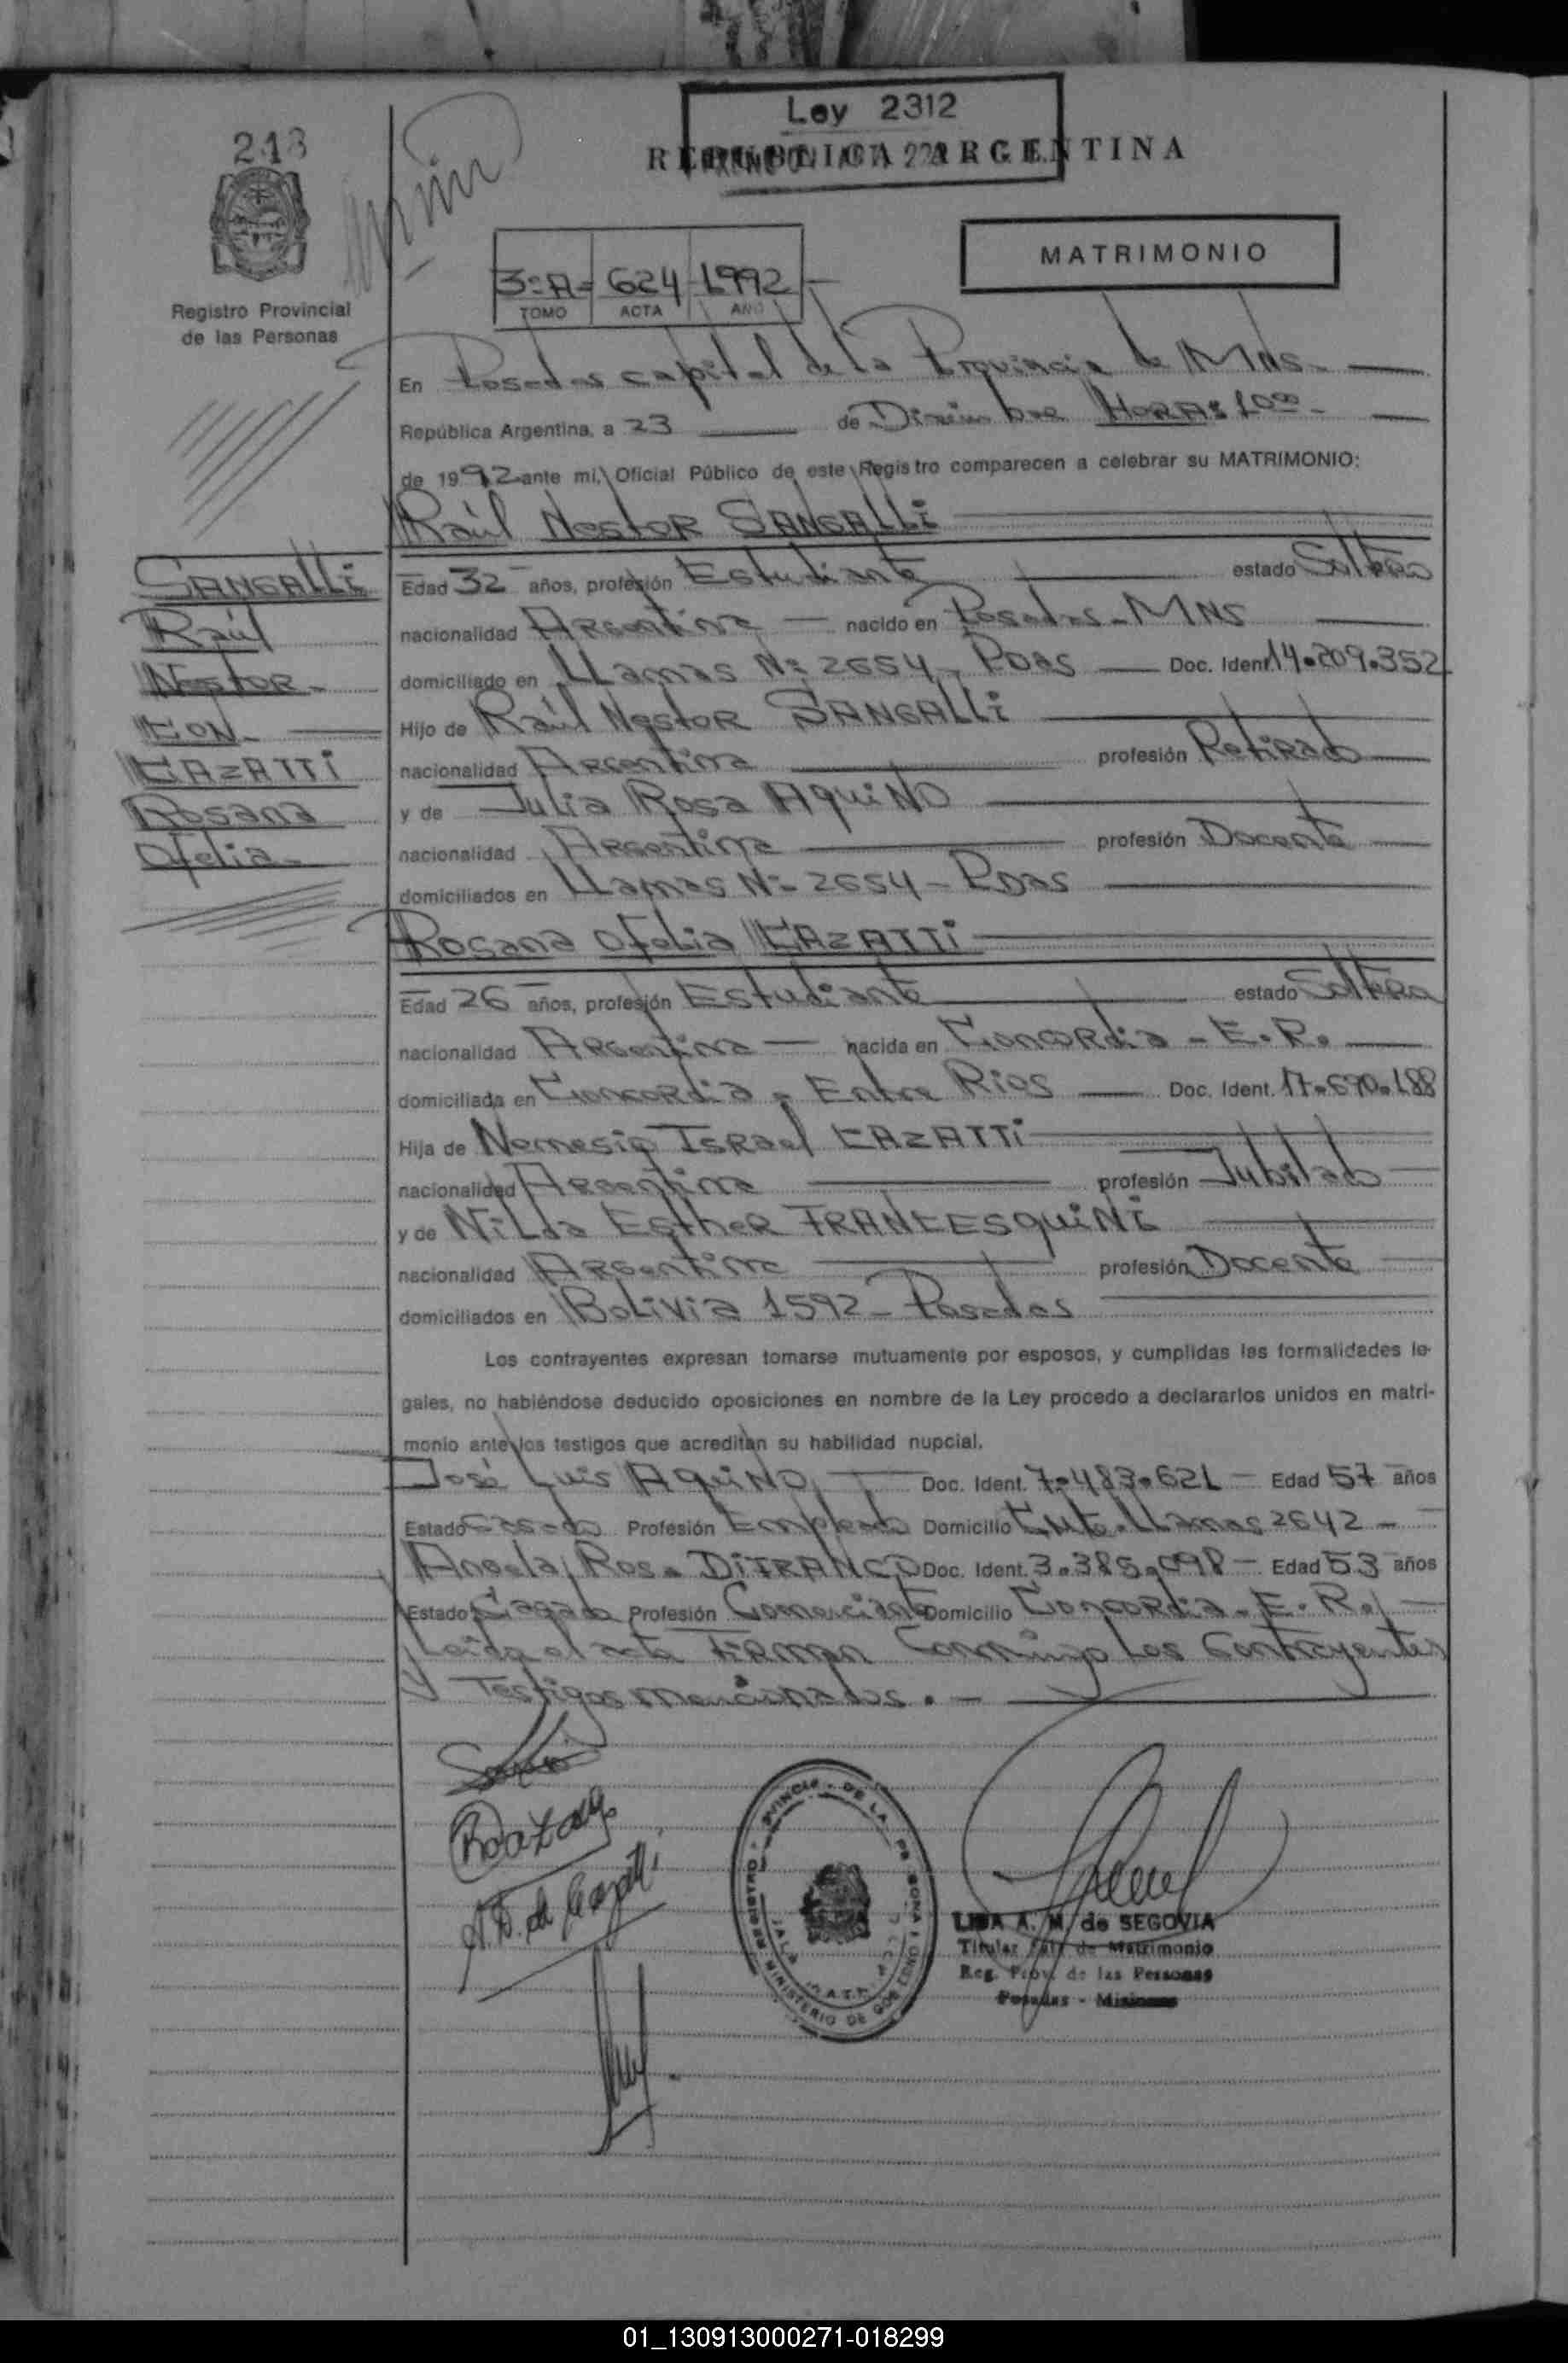 Ley 2312
213
REPUBLICA ARGENTINA
MATRIMONIO
3=A= 624 1992
TOMO ACTA AÑO
Registro Provincial
de las Personas
En Posadas capital de la Provincia de MNS.
República Argentina, a 23 de Diciembre HORA: 10:00
de 1992 ante mi, Oficial Público de este Registro comparecen a celebrar su MATRIMONIO:
Raúl Nestor SANGALLI
SANGALLI
Raúl
Nestor
CON
CAZATTI
Rosana
Ofelia
Edad 32 años, profesión Estudiante estado Soltero
nacionalidad Argentina nacido en Posadas - MNS
domiciliado en LLamas Nº 2654 - Pdas Doc. Ident. 14.209.352
Hijo de Raúl Nestor SANGALLI
nacionalidad Argentina profesión Retirado
y de Julia Rosa AQUINO
nacionalidad Argentina profesión Docente
domiciliados en LLamas Nº 2654 - Pdas
Rosana Ofelia CAZATTI
Edad 26 años, profesión Estudiante estado Soltera
nacionalidad Argentina nacida en Concordia - E.R.
domiciliada en Concordia - Entre Rios Doc. Ident. 17.670.188
Hija de Nemesio Israel CAZATTI
nacionalidad Argentina profesión Jubilado
y de Nilda Esther FRANCESQUINI
nacionalidad Argentina profesión Docente
domiciliados en Bolivia 1592 - Posadas
Los contrayentes expresan tomarse mutuamente por esposos, y cumplidas las formalidades le-
gales, no habiéndose deducido oposiciones en nombre de la Ley procedo a declararlos unidos en matri-
monio ante los testigos que acreditan su habilidad nupcial.
José Luis AQUINO Doc. Ident. 7.483.621 Edad 57 años
Estado Casado Profesión Empleado Domicilio Cnte. LLamas 2642
Angela Rosa DIFRANCO Doc. Ident. 3.385.098 Edad 53 años
Estado Casada Profesión Comerciante Domicilio Concordia - E.R.
Leida el acta Firman Conmigo Los Contrayentes
y Testigos mencionados.
A. D. de Cazatti
REGISTRO PROVINCIAL DE LAS PERSONAS
MINISTERIO DE GOBIERNO
A. M. de SEGOVIA
Titular de Matrimonio
Reg. Prov. de las Personas
Posadas - Misiones
01_130913000271-018299